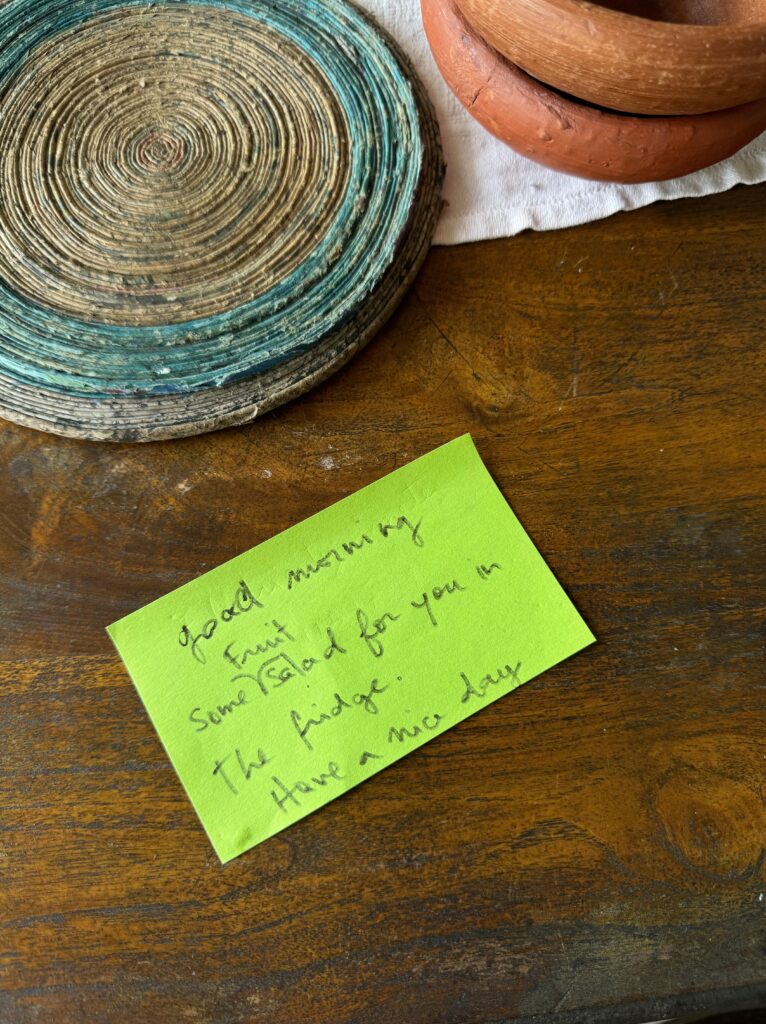 good morning
Some Fruit Salad for you in
the fridge.
Have a nice day